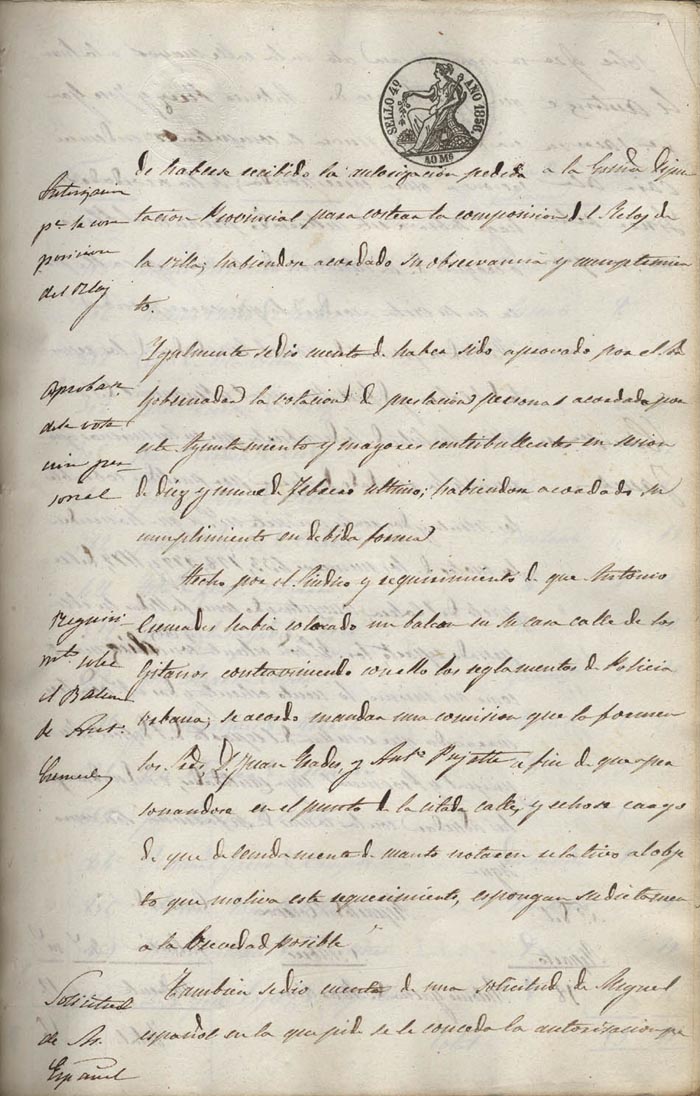 SELLO 4º AÑO 1856.
40 Ms
de haberse recibido la autorización pedida a la Exma Dipu
tacion Provincial para costear la composicion del Reloj de
la Villa; habiendose acordado su observancia y cumplimien
to.
pr. la com
posicion
del Reloj
Igualmente se dio cuenta de haber sido aprovado por el Sr.
Gobernador la votacion de prestacion personal acordada por
este Ayuntamiento y mayores contribullentes en sesion
de diez y nueve de Febrero ultimo; habiendose acordado su
cumplimiento en debida forma
Aprobacn.
de la vota
cion per
sonal
Hecho por el Sindico y requerimiento de que Antonio
Cremades habia colocado un balcon en su casa calle de los
Gitanos contraviniendo con ello los reglamentos de Policia
urbana; se acordó mandar una comision que la formen
los Sres. D. Juan Prades, y Anto. Pujalte a fin de que per
sonandose en el punto de la citada calle, y echose cargo
de que debidamente de cuanto notaren relativo al obje
to que motiva este requerimiento, espongan su dictamen
a la brevedad posible
Requiri-
mto. sobre
el Balcon
de Anto.
Cremades
Tambien se dio cuenta de una solicitud de Miguel
español en la que pide se le conceda la autorizacion pa
Solicitud
de
Español